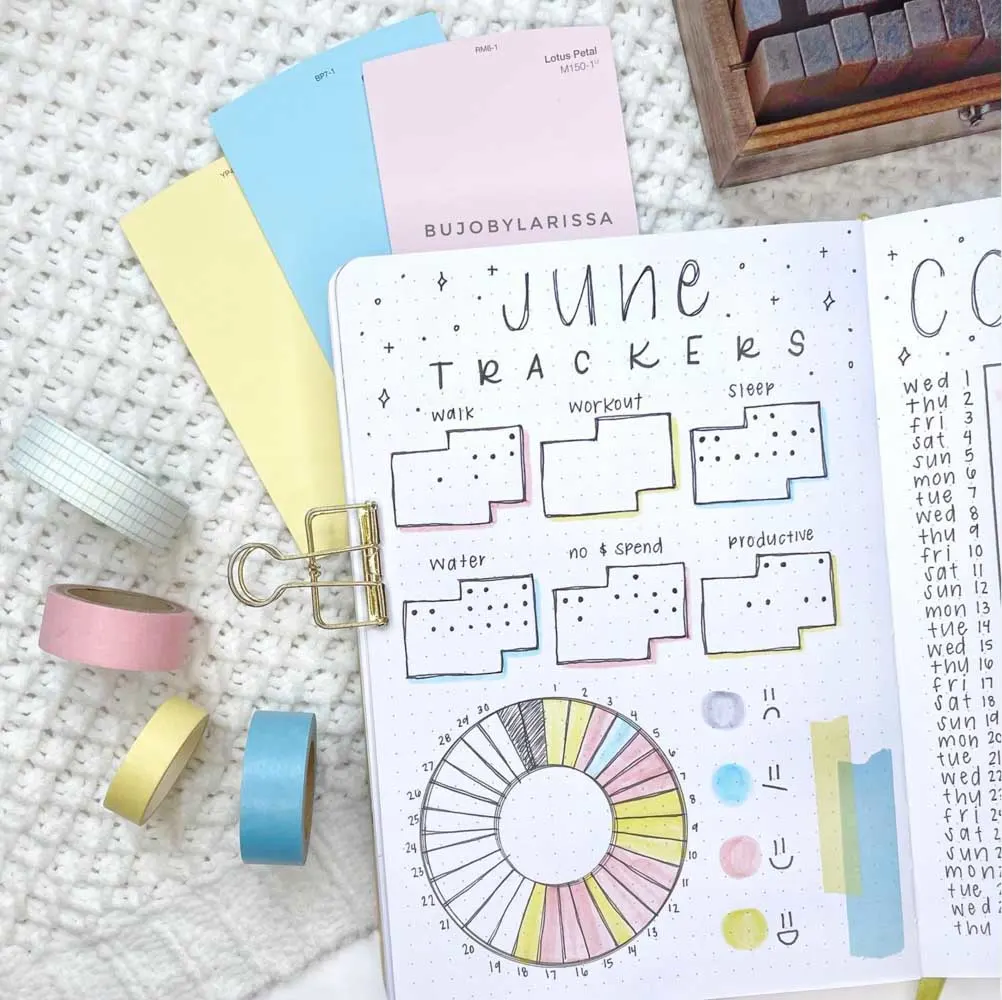 BP7-1
RM6-1
Lotus Petal
M150-1
BUJOBYLARISSA
JUNE
TRACKERS
walk workout sleep
water no $ spend productive
1
2
3
4
5
6
7
8
9
10
11
12
13
14
15
16
17
18
19
20
21
22
23
24
25
26
27
28
29
30
wed 1
thu 2
fri 3
sat 4
sun 5
mon 6
tue 7
wed 8
thu 9
fri 10
sat 11
sun 12
mon 13
tue 14
wed 15
thu 16
fri 17
sat 18
sun 19
mon 20
tue 21
wed 22
thu 23
fri 24
sat 2
sun 2
mon
tue
wed
thu